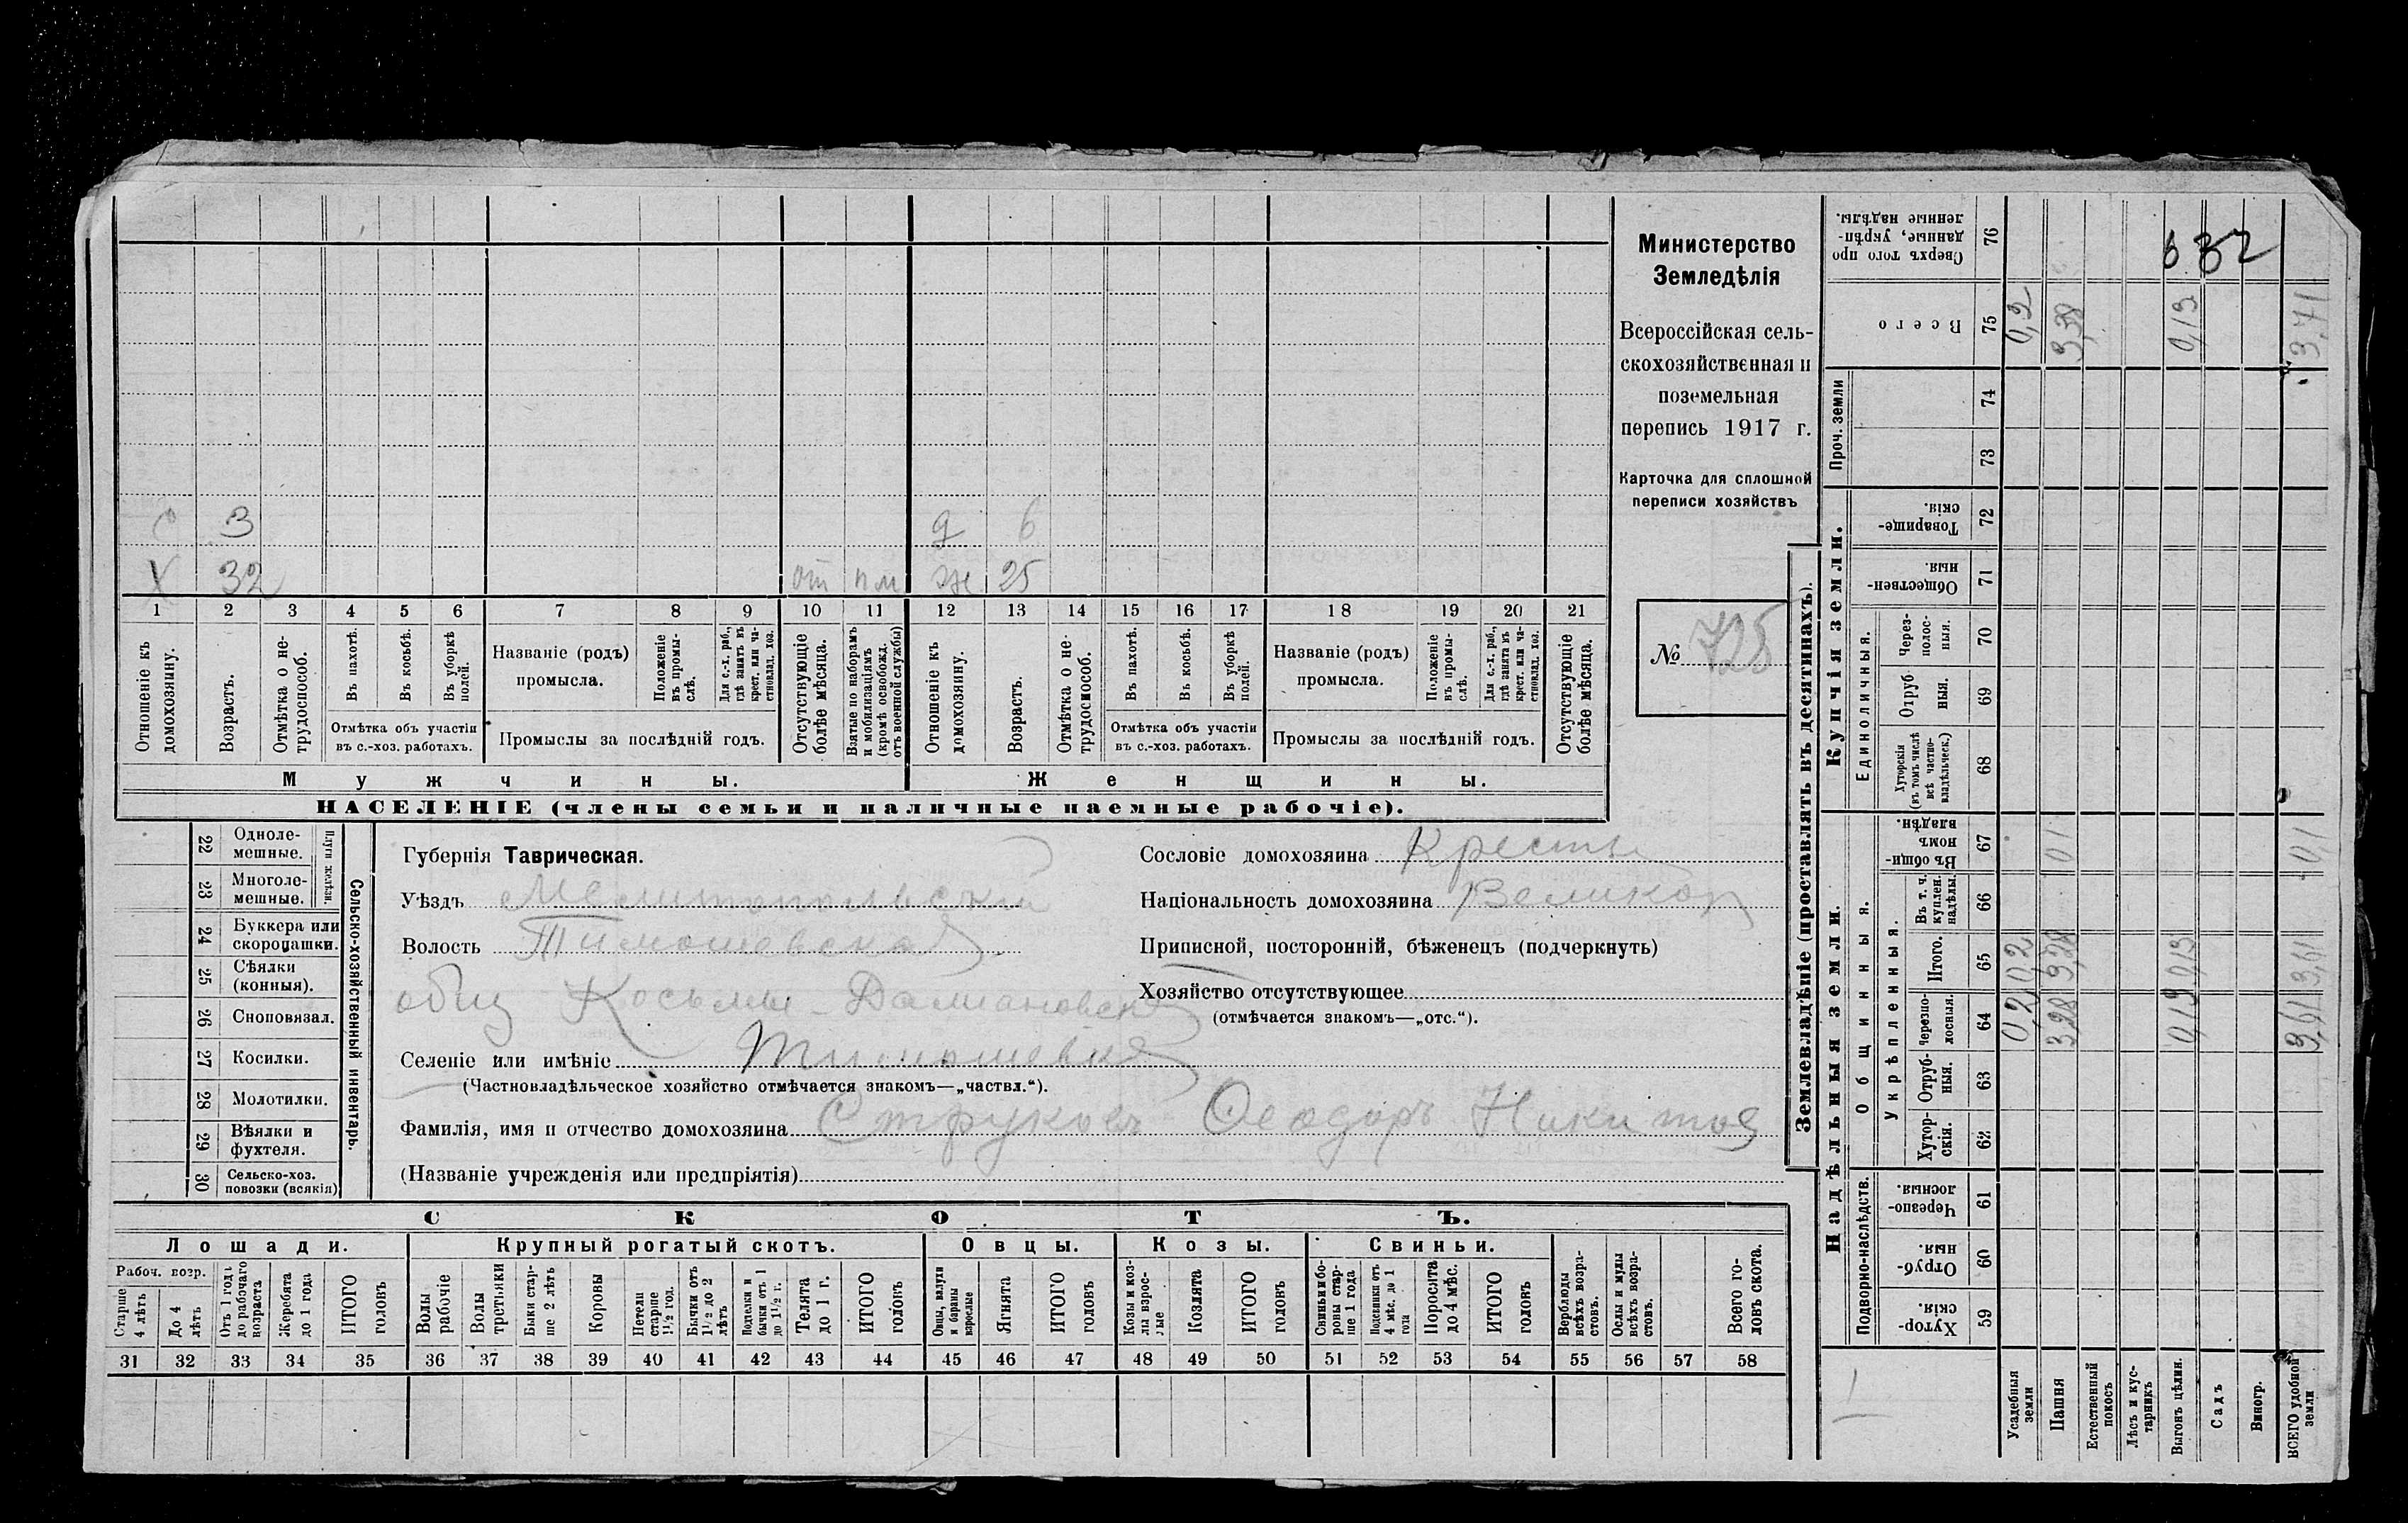 С 3 д 6
Х 32 от пм ж 25
1 2 3 4 5 6 7 8 9 10 11 12 13 14 15 16 17 18 19 20 21
Отношеніе къ домохозяину.
Возрастъ.
Отмѣтка о не-трудоспособ.
Въ пахотѣ.
Въ косьбѣ.
Въ уборкѣ полей.
Отмѣтка объ участіи
въ с.-хоз. работахъ.
Названіе (родъ)
промысла.
Положеніе въ промы-слѣ.
Для с.-х. раб., гдѣ занятъ въ крест. или ча-стновлад. хоз.
Промыслы за послѣдній годъ.
Отсутствующіе болѣе мѣсяца.
Взятые по наборамъ и мобилизаціямъ (кромѣ освобожд. отъ военной службы)
Отношеніе къ домохозяину.
Возрастъ.
Отмѣтка о не-трудоспособ.
Въ пахотѣ.
Въ косьбѣ.
Въ уборкѣ полей.
Отмѣтка объ участіи
въ с.-хоз. работахъ.
Названіе (родъ)
промысла.
Положеніе въ промы-слѣ.
Для с.-х. раб., гдѣ занята въ крест. или ча-стновлад. хоз.
Промыслы за послѣдній годъ.
Отсутствующіе болѣе мѣсяца.
Мужчины. Женщины.
НАСЕЛЕНІЕ (члены семьи и наличные наемные рабочіе).
Министерство
Земледѣлія
Всероссійская сель-
скохозяйственная и
поземельная
перепись 1917 г.
Карточка для сплошной
переписи хозяйствъ
№ 725
Сельско-хозяйственный инвентарь.
Плуги желѣзн.
22 Одноле-
мешные.
23 Многоле-
мешные.
24 Буккера или
скоропашки.
25 Сѣялки
(конныя).
26 Сноповязал.
27 Косилки.
28 Молотилки.
29 Вѣялки и
фухтеля.
30 Сельско-хоз.
повозки (всякія)
Губернія Таврическая.
Уѣздъ Мелитопольскій
Волость Тимошевская
общ Косьмы-Даміановск
Селеніе или имѣніе Тимошевка
(Частновладѣльческое хозяйство отмѣчается знакомъ—„частвл.“).
Фамилія, имя и отчество домохозяина Струковъ Ѳеодоръ Никитов
(Названіе учрежденія или предпріятія)
Сословіе домохозяина Кресть
Національность домохозяина Великор
Приписной, посторонній, бѣженецъ (подчеркнуть)
Хозяйство отсутствующее
(отмѣчается знакомъ—„отс.“).
СКОТЪ.
Лошади. Крупный рогатый скотъ. Овцы. Козы. Свиньи.
Рабоч. возр.
Старше 4 лѣтъ
До 4 лѣтъ
Отъ 1 года до рабочаго возраста
Жеребята до 1 года
ИТОГО головъ
Волы рабочіе
Волы третьяки
Быки стар-ше 2 лѣтъ
Коровы
Нетели старше 1½ год.
Бычки отъ 1½ до 2 лѣтъ
Подтелки и бычки отъ 1 до 1½ г.
Телята до 1 г.
ИТОГО головъ
Овцы, валухи и бараны взрослые
Ягнята
ИТОГО головъ
Козы и коз-лы взрос-лые
Козлята
ИТОГО головъ
Свиньи и бо-ровы стар-ше 1 года
Подсвинки отъ 4 мѣс. до 1 года
Поросята до 4 мѣс.
ИТОГО головъ
Верблюды всѣхъ возра-стовъ.
Ослы и мулы всѣхъ возра-стовъ.
Всего го-ловъ скота.
31 32 33 34 35 36 37 38 39 40 41 42 43 44 45 46 47 48 49 50 51 52 53 54 55 56 57 58
Землевладѣніе (проставлять въ десятинахъ).
Надѣльныя земли.
Купчія земли.
Проч. земли
Подворно-наслѣдств.
Общинныя.
Укрѣпленныя.
Единоличныя.
Хутор-скія. 59
Отруб-ныя. 60
Черезпо-лосныя. 61
Хутор-скія. 62
Отруб-ныя. 63
Черезпо-лосныя. 64
Итого. 65
Въ т. ч. куплен. надѣлы. 66
Въ общи-номъ владѣн. 67
Хуторскія (въ томъ числѣ всѣ частно-владѣльческ.) 68
Отруб-ныя. 69
Через-полос-ныя. 70
Обществен-ныя. 71
Товарище-скія. 72
73
74
Всего 75
Сверхъ того про-данные, укрѣп-ленные надѣлы. 76
632
Усадебныя земли 0,2 0,2 0,2
Пашня 3,28 3,28 01 3,38
Естественный покосъ
Лѣсъ и кус-тарникъ
Выгонъ цѣлин. 0,13 0,13 0,13
Садъ
Виногр.
ВСЕГО удобной земли 3,61 3,61 0,1 3,71
1